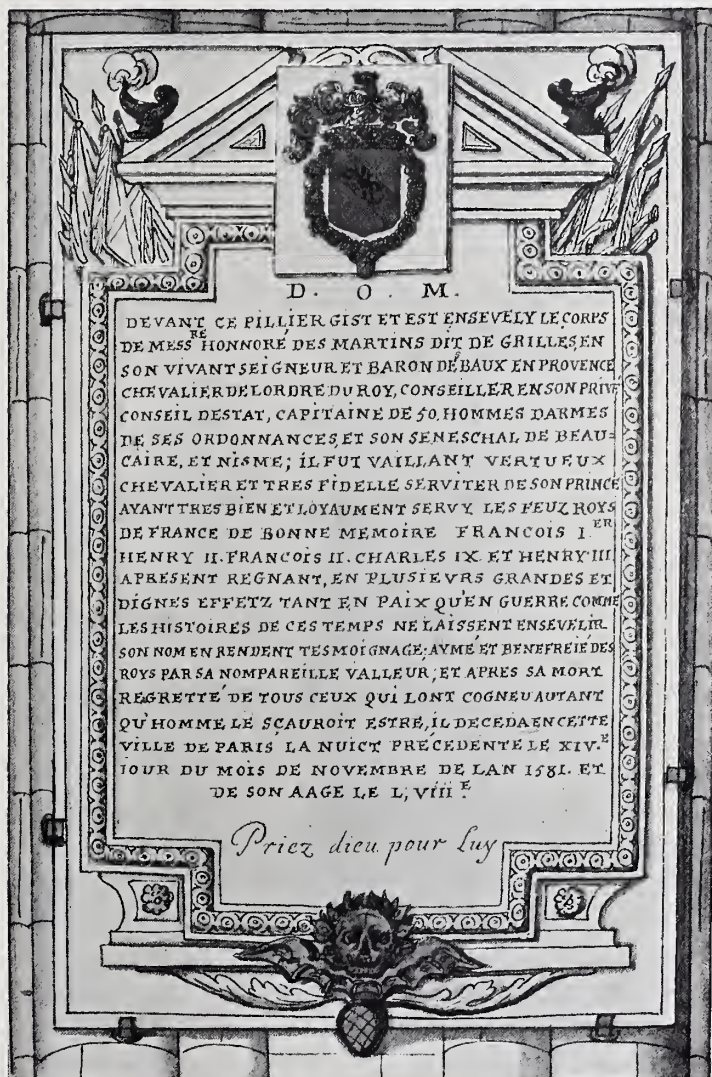 D. O. M.
DEVANT CE PILLIER GIST ET EST ENSEVELY LE CORPS
DE MESS.RE HONNORÉ DES MARTINS DIT DE GRILLES, EN
SON VIVANT SEIGNEUR ET BARON DES BAUX EN PROVENCE
CHEVALIER DE LORDRE DU ROY, CONSEILLER EN SON PRIVÉ
CONSEIL DESTAT, CAPITAINE DE 50. HOMMES DARMES
DE SES ORDONNANCES, ET SON SENESCHAL DE BEAU=
CAIRE, ET NISME; IL FUT VAILLANT VERTUEUX
CHEVALIER ET TRES FIDELLE SERVITER DE SON PRINCE
AYANT TRES BIEN ET LOYAUMENT SERVY LES FEUZ ROYS
DE FRANCE DE BONNE MEMOIRE FRANCOIS I.ER
HENRY II. FRANCOIS II. CHARLES IX. ET HENRY III.
APRESENT REGNANT, EN PLUSIEVRS GRANDES ET
DIGNES EFFETZ TANT EN PAIX QU'EN GUERRE COMME
LES HISTOIRES DE CES TEMPS NE LAISSENT ENSEVELIR
SON NOM EN RENDENT TESMOIGNAGE; AYMÉ ET BENEFREIÉ DES
ROYS PAR SA NOMPAREILLE VALLEUR; ET APRES SA MORT
REGRETTÉ DE TOUS CEUX QUI LONT COGNEU AUTANT
QU'HOMME LE SÇAUROIT ESTRE, IL DECEDA EN CETTE
VILLE DE PARIS LA NUICT PRECEDENTE LE XIV.E
IOUR DU MOIS DE NOVEMBRE DE LAN 1581. ET
DE SON AAGE LE L, VIII E.
Priez dieu pour luy